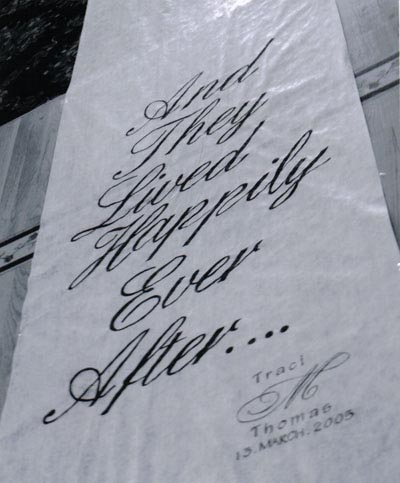 And
They
Lived
Happily
Ever
After....
Traci
M
Thomas
13.MARCH.2005